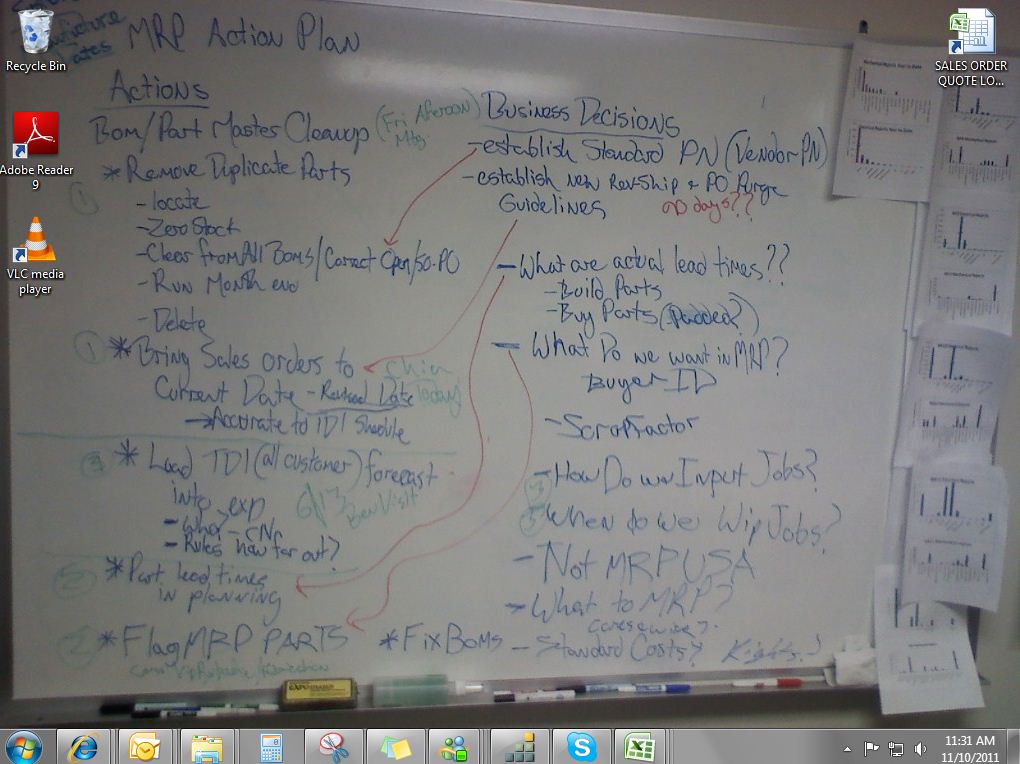 Recycle Bin
Adobe Reader
9
VLC media
player
SALES ORDER
QUOTE LO...
MRP Action Plan
Actions
Bom/Part Master Cleanup
(Fri Afernoon)
Mtg
* Remove Duplicate Parts
- locate
- Zero Stock
- Clear from All Boms/Correct Open/SO-PO
- Run Month end
- Delete
① * Bring Sales orders to
Current Date - Revised Date
Today
③ * Load TDI (all customer) forecast
into exp
- Who
- Rules how far out?
6/13
Ben Visit
② * Part lead times
in planning
② * Flag MRP PARTS * Fix Boms
Business Decisions
- establish Standard PN (Vendor PN)
- establish new Rev-Ship & PO Purge
Guidelines
90 days??
- What are actual lead times??
- Build Parts
- Buy Parts (Padded?)
- What Do we want in MRP?
Buyer ID
- Scrap Factor
- How Do we Input Jobs?
⑤ When do we Wip Jobs?
- Not MRP USA
- What to MRP?
- Standard Costs?
EXPO
11:31 AM
11/10/2011